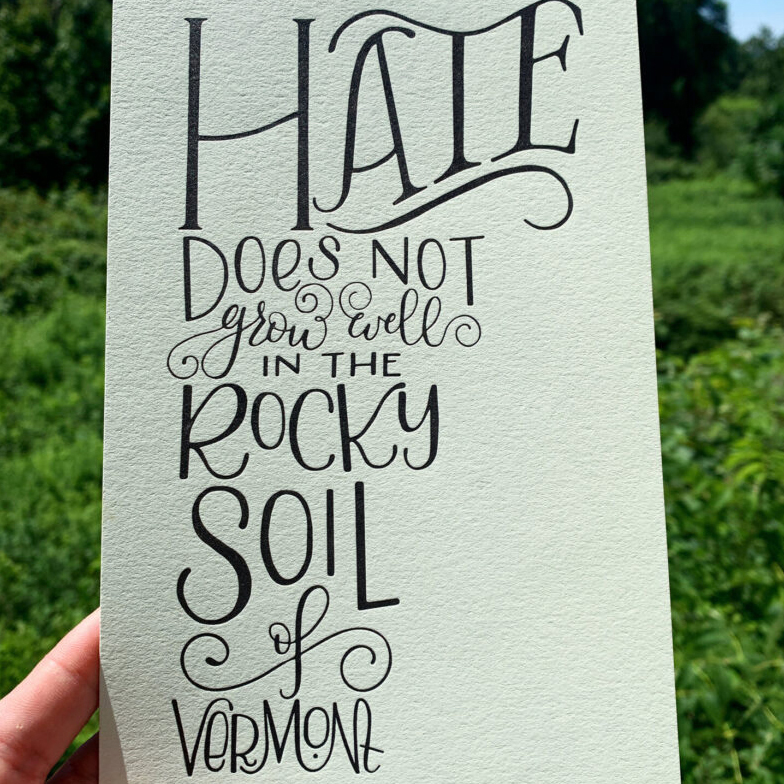 HATE
DOES NOT
grow well
IN THE
ROCKY
SOIL
of
VERMONT